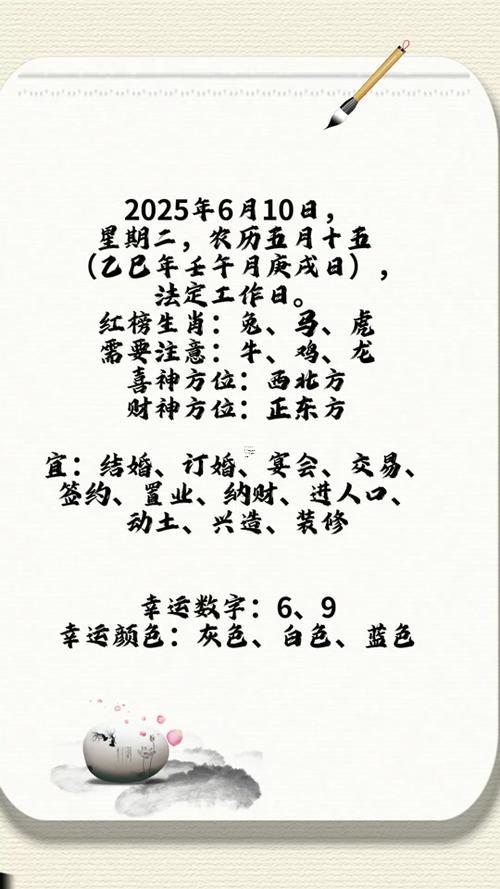 2025年6月10日，
星期二，农历五月十五
（乙巳年壬午月庚戌日），
法定工作日。
红榜生肖：兔、马、虎
需要注意：牛、鸡、龙
喜神方位：西北方
财神方位：正东方
宜：结婚、订婚、宴会、交易、
签约、置业、纳财、进人口、
动土、兴造、装修
幸运数字：6、9
幸运颜色：灰色、白色、蓝色